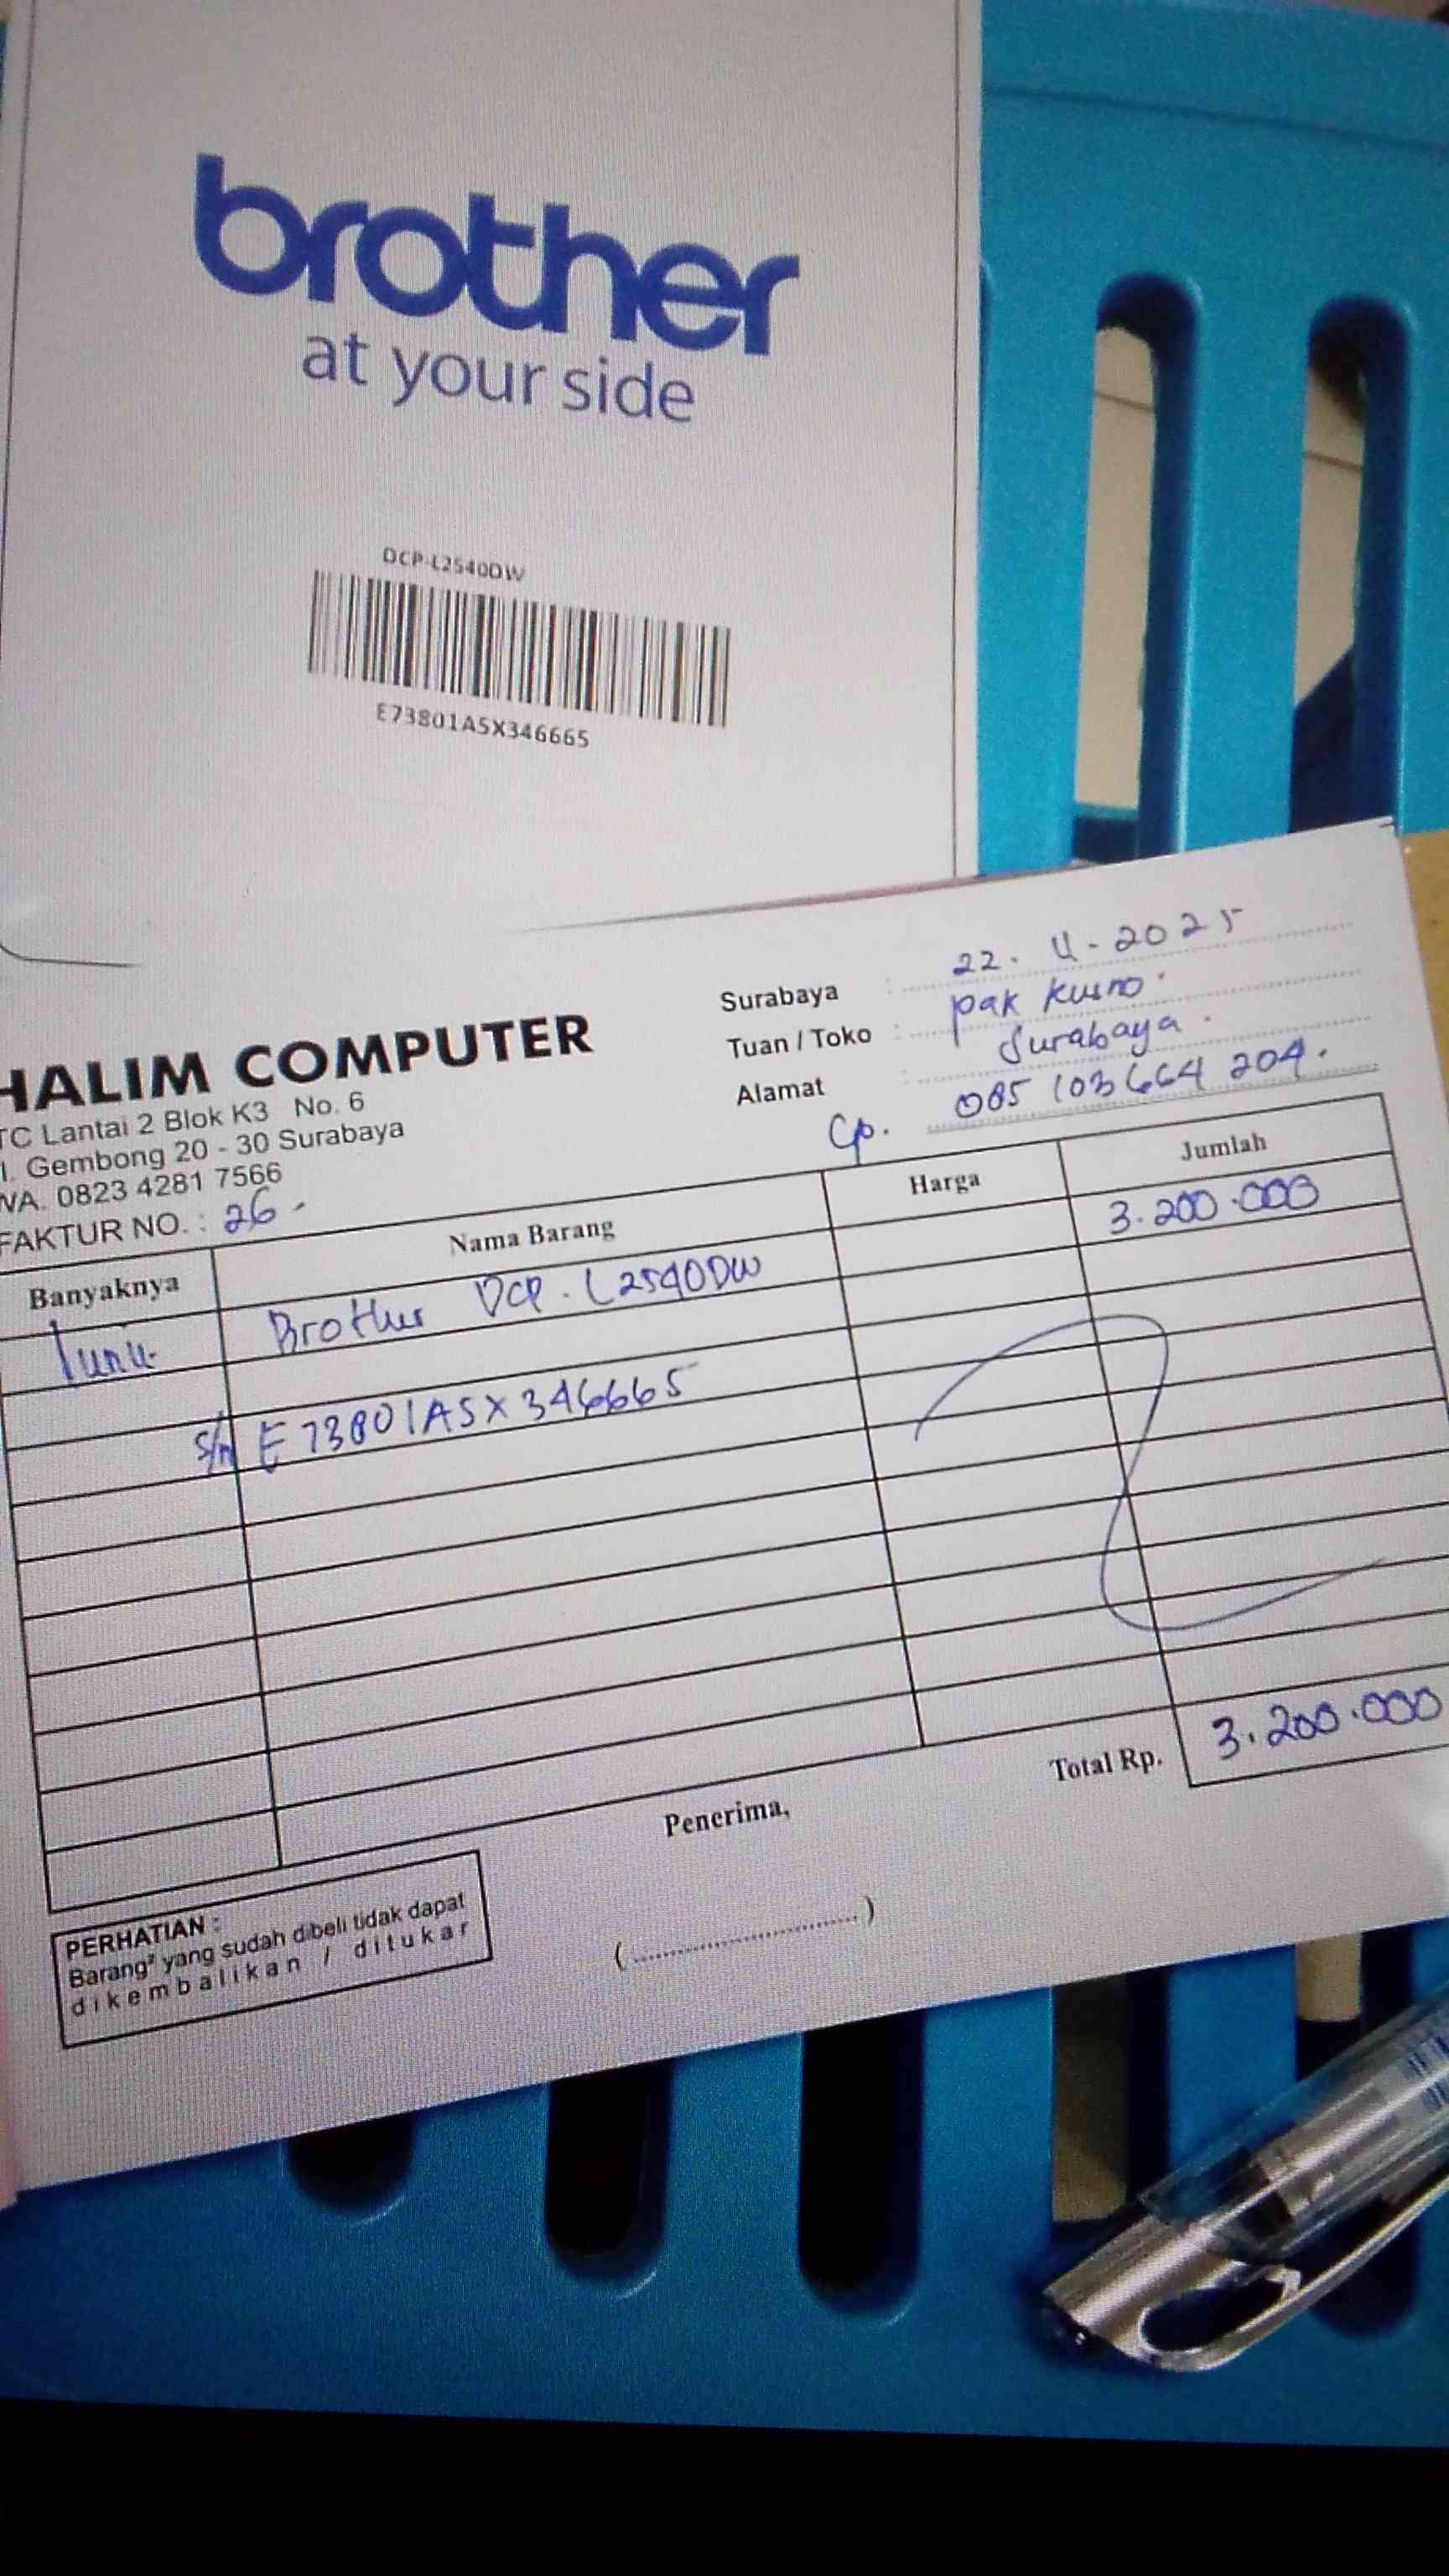 brother
at your side
DCP-L2540DW
E73801A5X346665
HALIM COMPUTER
TC Lantai 2 Blok K3 No. 6
l. Gembong 20 - 30 Surabaya
WA. 0823 4281 7566
FAKTUR NO. : 26.
Surabaya : 22. 4-2025
Tuan / Toko : pak kusno.
Alamat : Surabaya.
Cp. 085 103 664 204.
Banyaknya Nama Barang Harga Jumlah
1 unit Brother DCP. L2540DW 3.200.000
S/N E73801A5X346665
Total Rp. 3.200.000
Penerima,
(..............................)
PERHATIAN :
Barang² yang sudah dibeli tidak dapat
dikembalikan / ditukar